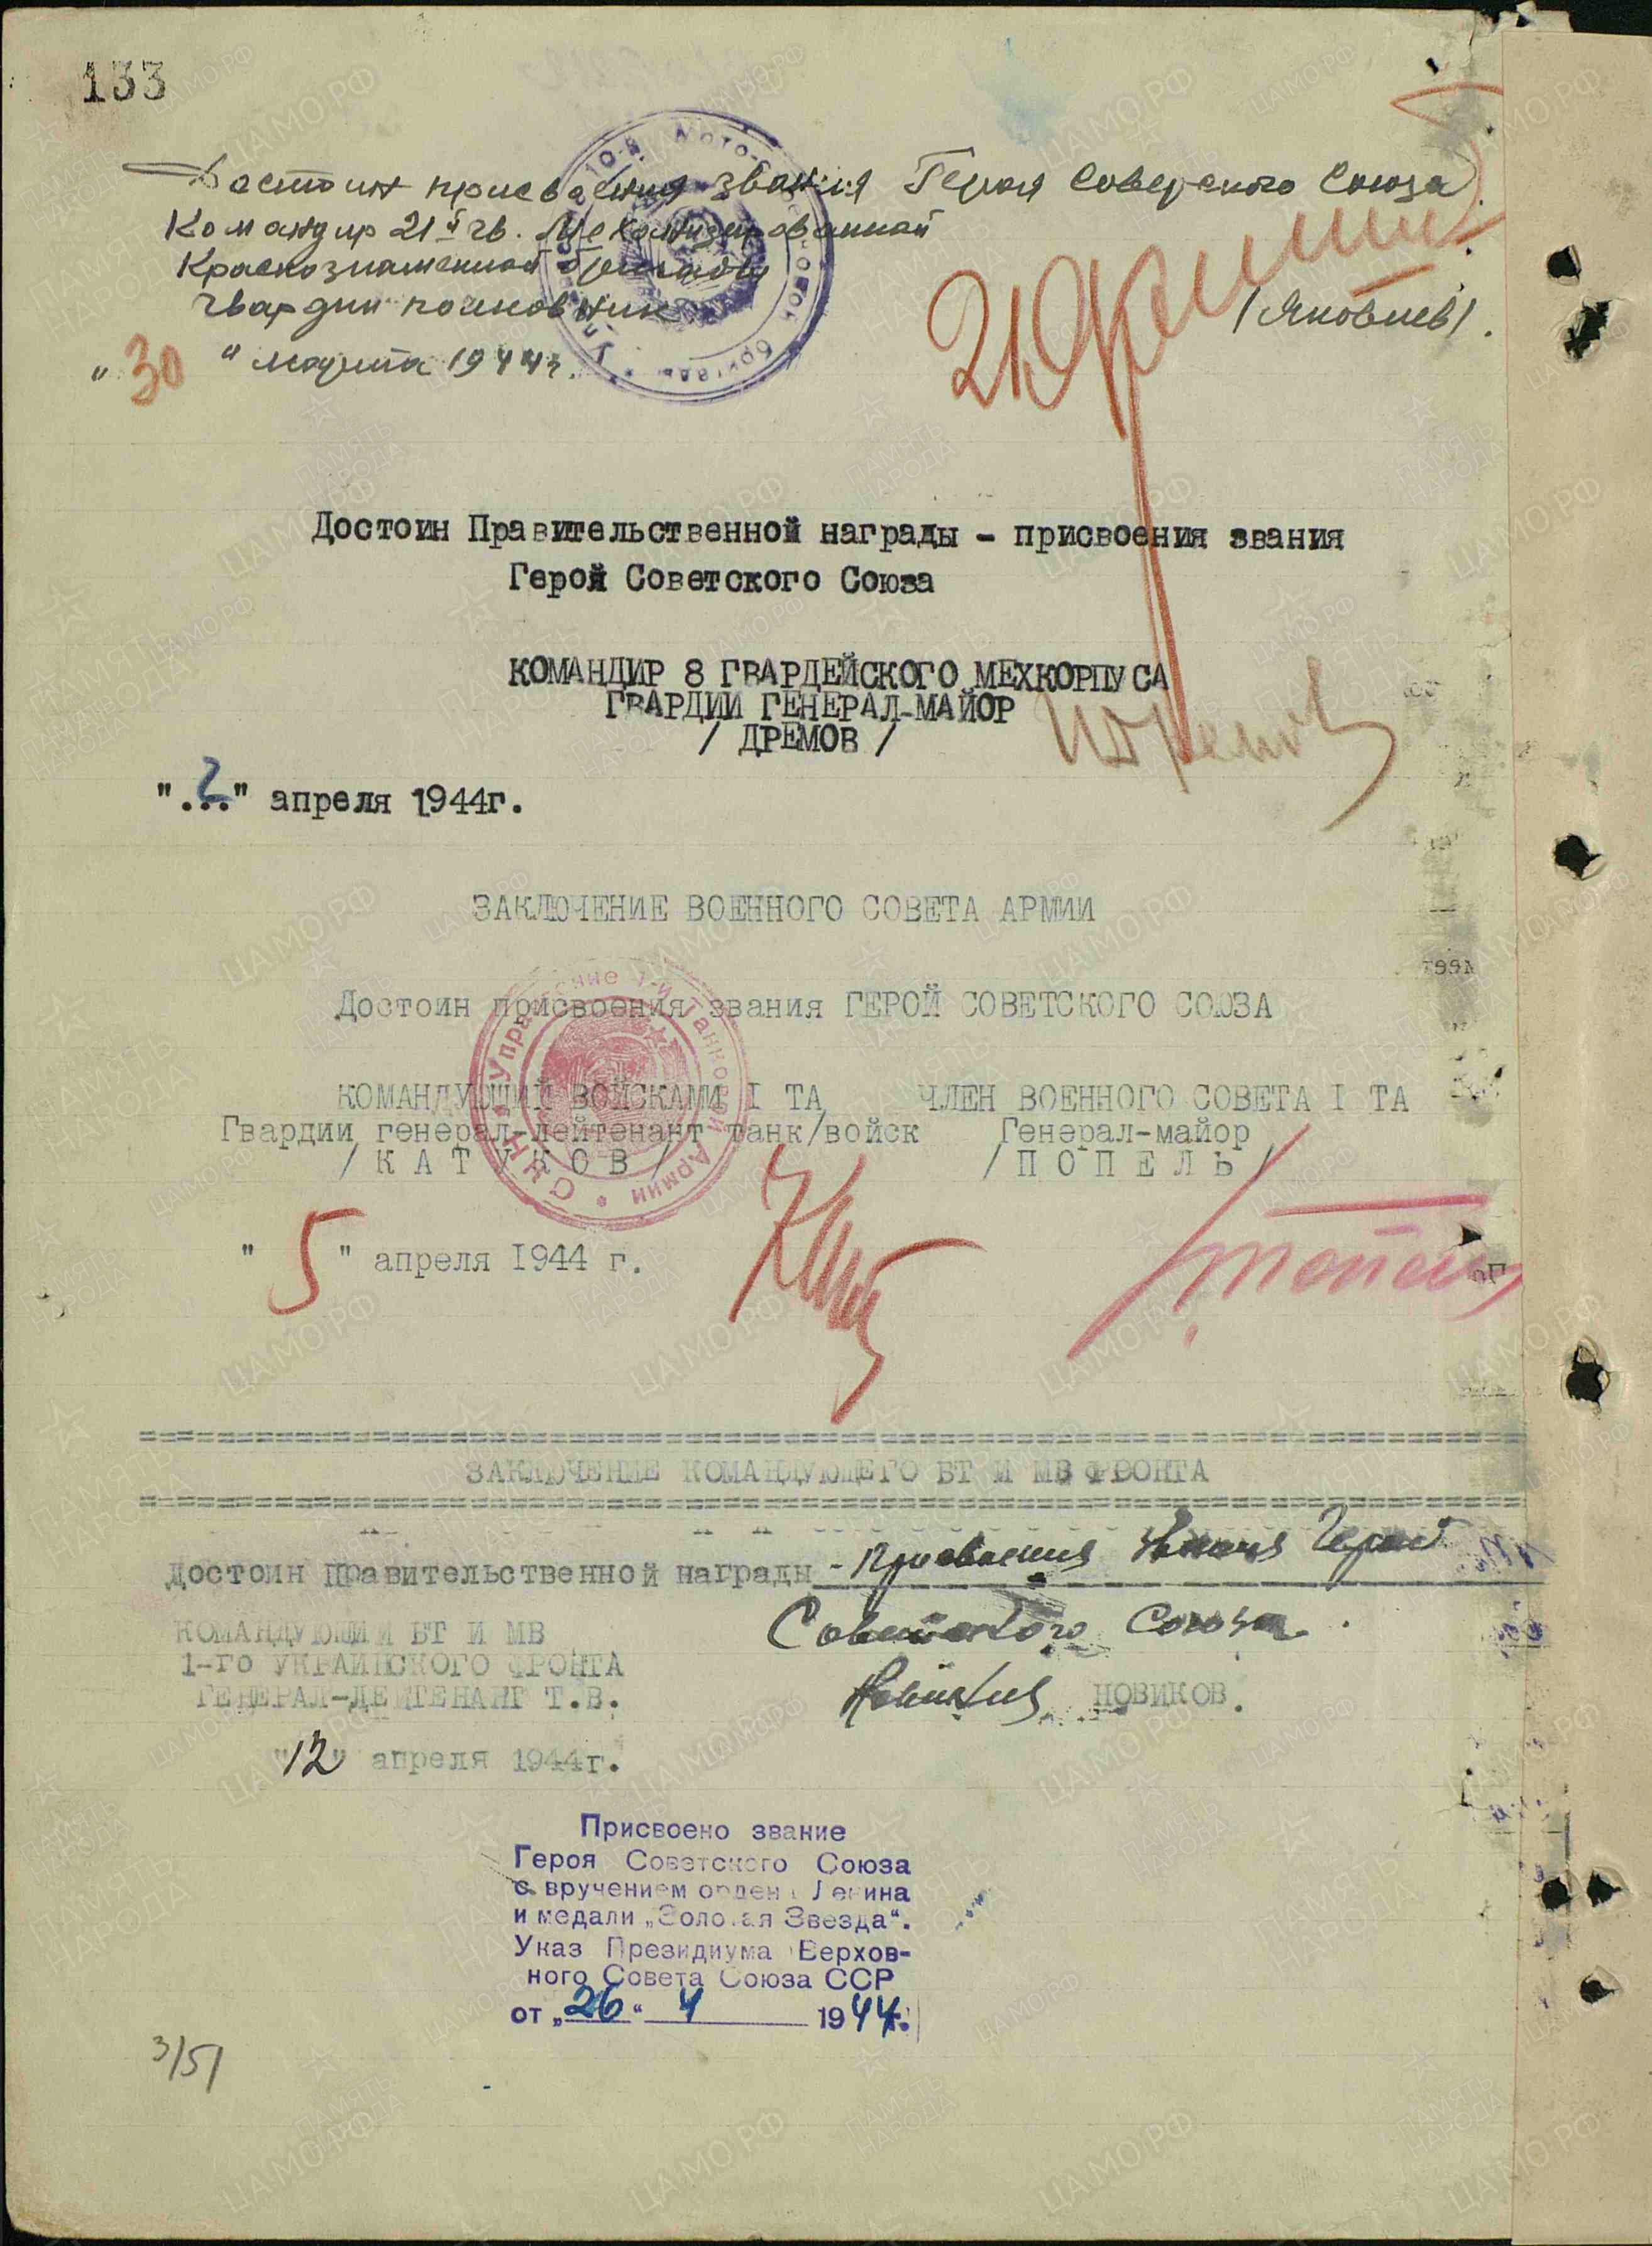 133
Достоин присвоения звания Героя Советского Союза
Командир 21й гв. Механизированной
Краснознаменной бригады
гвардии полковник
/Яковлев/.
"30" марта 1944г.
Достоин Правительственной награды - присвоения звания
Герой Советского Союза
КОМАНДИР 8 ГВАРДЕЙСКОГО МЕХКОРПУСА
ГВАРДИИ ГЕНЕРАЛ-МАЙОР
/ ДРЕМОВ /
"2" апреля 1944г.
ЗАКЛЮЧЕНИЕ ВОЕННОГО СОВЕТА АРМИИ
Достоин присвоения звания ГЕРОЙ СОВЕТСКОГО СОЮЗА
Управление 1-й Танковой Армии * СКН *
КОМАНДУЮЩИЙ ВОЙСКАМИ I ТА ЧЛЕН ВОЕННОГО СОВЕТА I ТА
Гвардии генерал-лейтенант танк/войск Генерал-майор
/ К А Т У К О В / / П О П Е Л Ь /
"5" апреля 1944 г.
ЗАКЛЮЧЕНИЕ КОМАНДУЮЩЕГО БТ И МВ ФРОНТА
Достоин Правительственной награды - присвоения звания Герой
Советского Союза.
КОМАНДУЮЩИЙ БТ И МВ
1-го УКРАИНСКОГО ФРОНТА
ГЕНЕРАЛ-ЛЕЙТЕНАНТ Т.В. НОВИКОВ.
"12" апреля 1944г.
Присвоено звание
Героя Советского Союза
с вручением ордена Ленина
и медали „Золотая Звезда“.
Указ Президиума Верхов-
ного Совета Союза ССР
от „26“ 4 1944г.
3/51